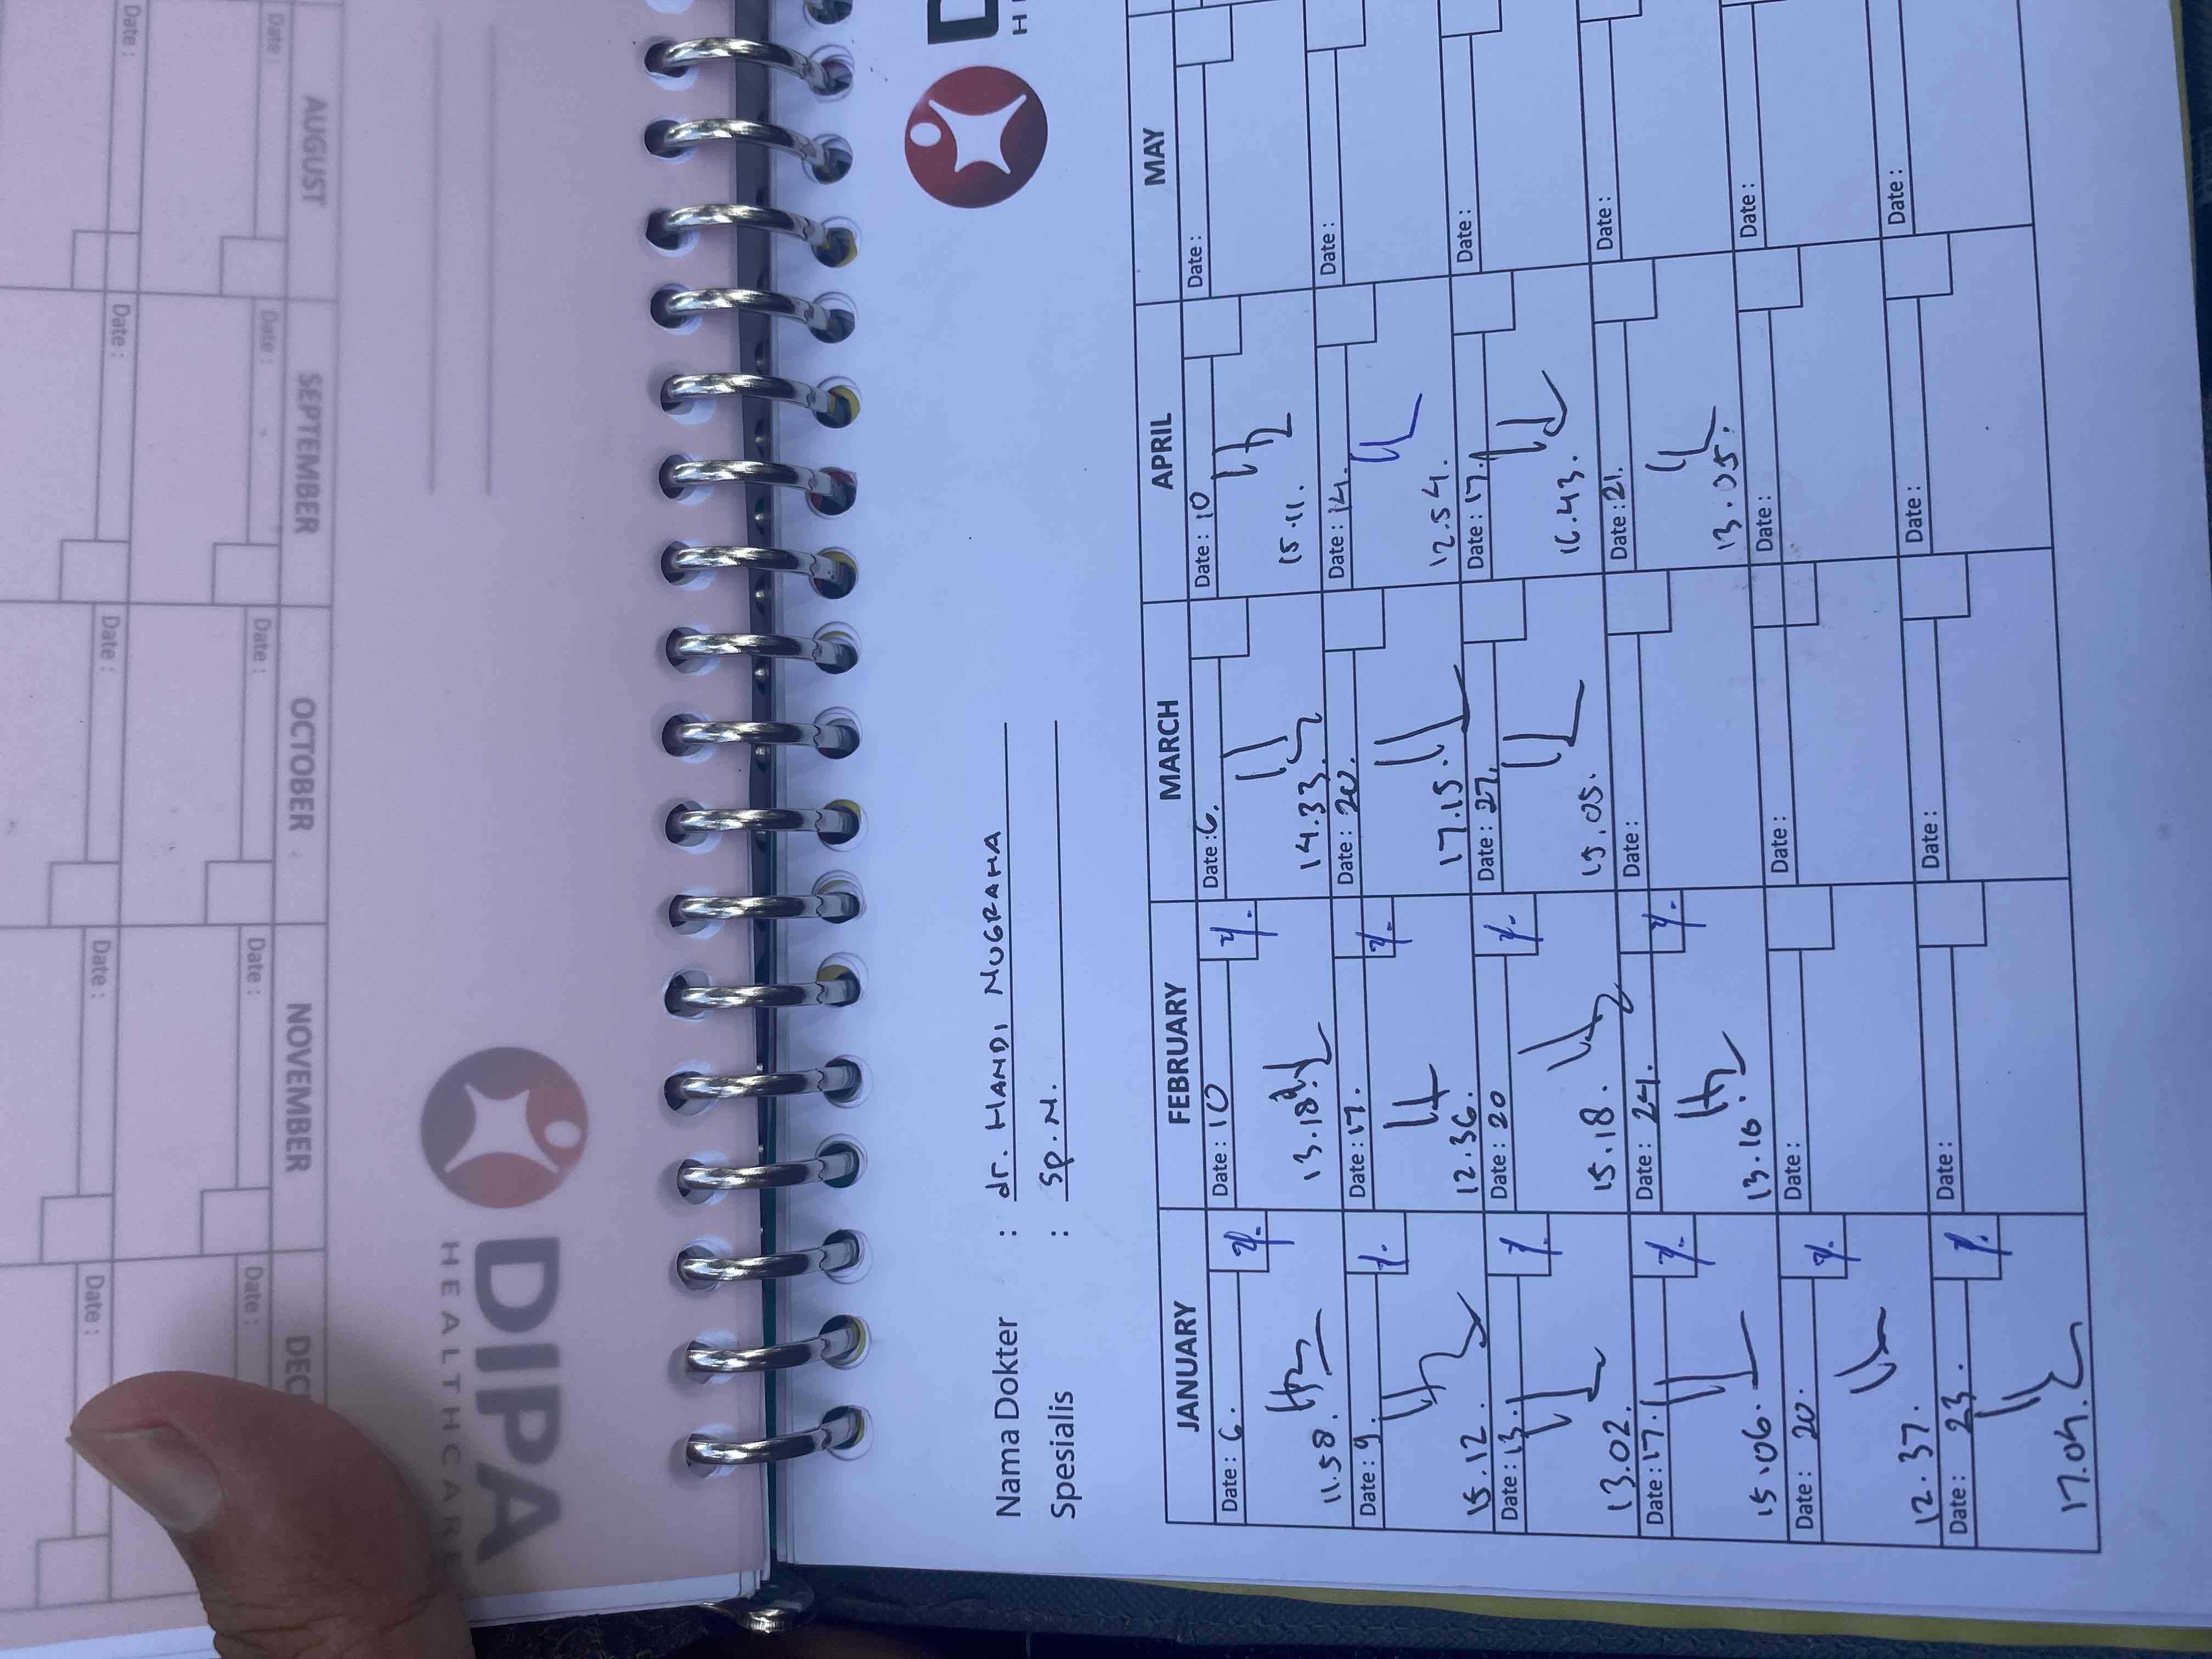 DIPA
HEALTHCARE
AUGUST
SEPTEMBER
OCTOBER
NOVEMBER
Date :
Date :
Date :
Date :
Date :
Date :
Date :
Date :
Date :
Date :
Nama Dokter : dr. HANDI NUGRAHA
Spesialis : Sp.N.
JANUARY FEBRUARY MARCH APRIL MAY
Date : 6. Date : 10 Date : 6. Date : 10 Date :
11.58. 13.18. 14.33. 15.11.
Date : 9. Date : 17. Date : 20. Date : 14. Date :
15.12. 12.36. 17.15. 12.54.
Date : 13. Date : 20 Date : 27. Date : 17. Date :
13.02. 15.18. 16.43.
Date : 17. Date : 24. Date : Date : 21. Date :
15.06. 13.16. 13.05.
Date : 20. Date : Date : Date : Date :
12.37.
Date : 23. Date : Date : Date : Date :